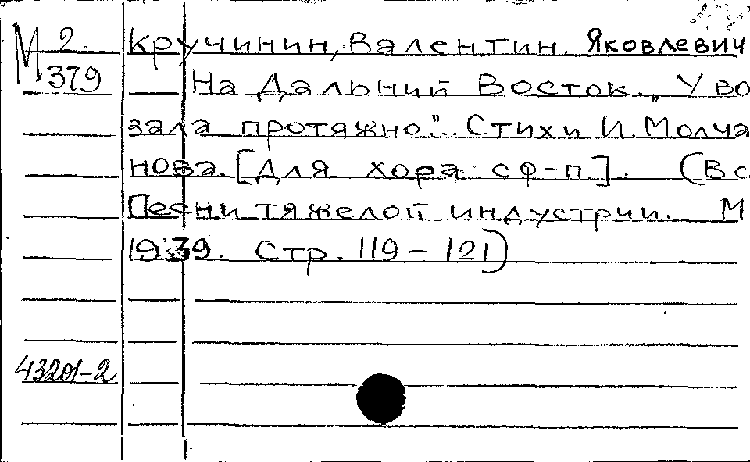 М 2.
379
Кручинин, Валентин Яковлевич
На Дальний Восток. „У во
зала протяжно". Стихи И. Молча
нова. [Для хора с ф-п]. (В с
Песни тяжелой индустрии. М
1939. Стр. 119-121)
43201-2